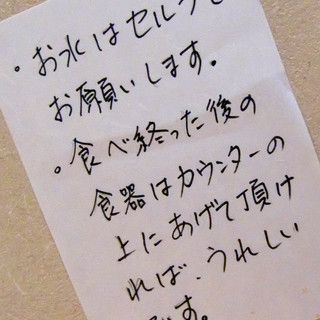 ・お水はセルフで
お願いします。
・食べ終った後の
食器はカウンターの
上にあげて頂け
れば、うれしい
です。